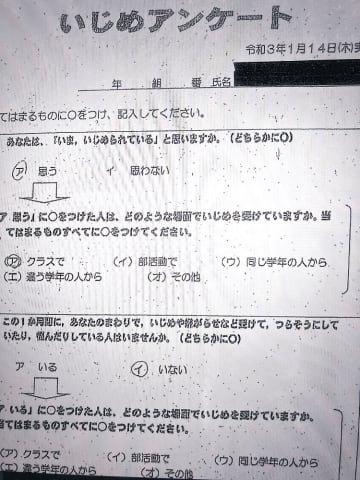 いじめアンケート
令和3年1月14日(木)実
年 組 番 氏名
てはまるものに○をつけ、記入してください。
あなたは、「いま、いじめられている」と思いますか。(どちらかに○)
ア 思う イ 思わない
ア 思う」に○をつけた人は、どのような場面でいじめを受けていますか。当
てはまるものすべてに○をつけてください。
(ア) クラスで (イ) 部活動で (ウ) 同じ学年の人から
(エ) 違う学年の人から (オ) その他
この1か月間に、あなたのまわりで、いじめや嫌がらせなど受けて、つらそうにして
いたり、悩んだりしている人はいませんか。(どちらかに○)
ア いる イ いない
ア いる」に○をつけた人は、どのような場面でいじめを受けていますか。
当てはまるものすべてに○をつけてください。
(ア) クラスで (イ) 部活動で (ウ) 同じ学年の人から
(エ) 違う学年の人から (オ) その他